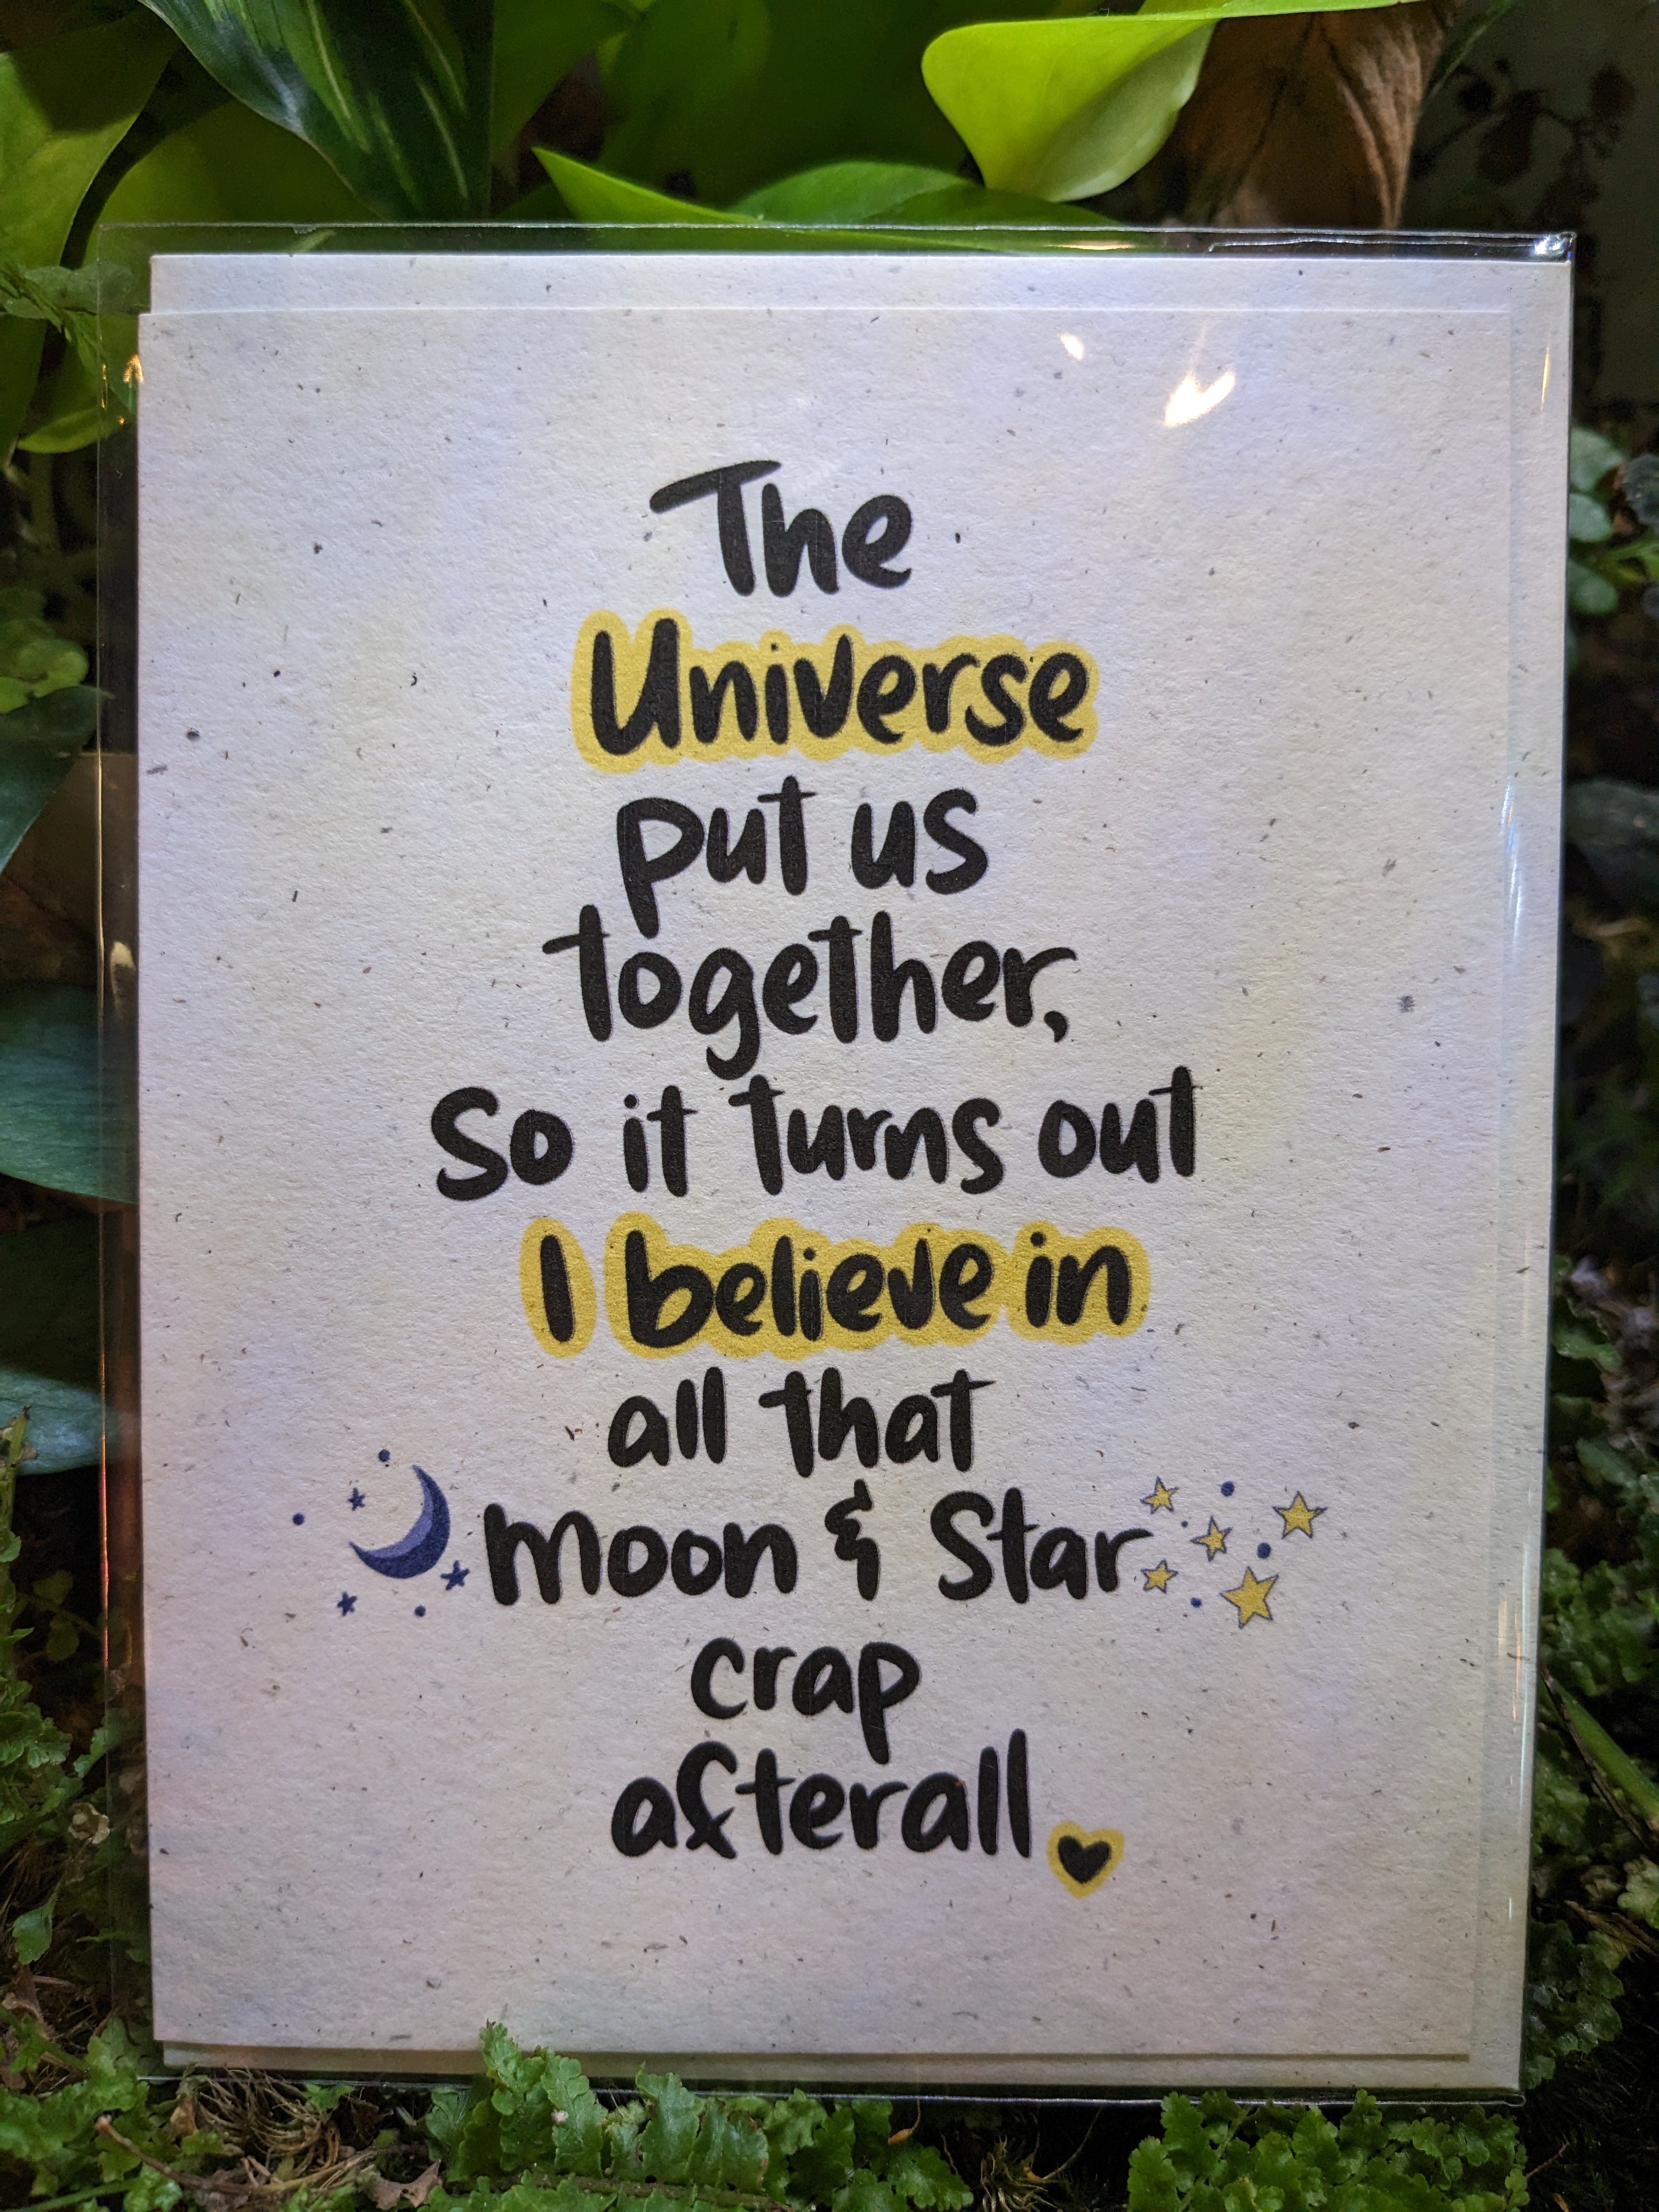 The
Universe
put us
together,
So it turns out
I believe in
all that
moon & Star
crap
afterall